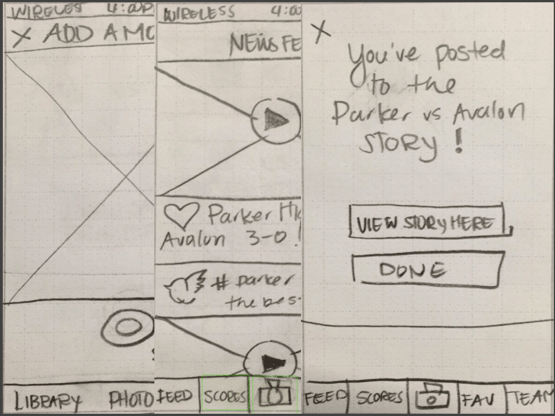 WIRELES 4:00P
X ADD A MO
LIBRARY PHOTO
WIRELESS 4:00
NEWS FE
Parker
Avalon 3-0!
# parker
the bes
FEED SCORES
X
You've posted
to the
Parker vs Avalon
STORY!
VIEW STORY HERE
DONE
FEED SCORES FAV TEAM